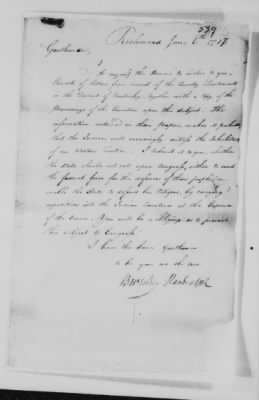 539
Richmond June 6th 1787
Gentlemen
I do myself the Honor to inclose to you,
Extracts of Letters from several of the County Lieutenants
in the District of Kentucky, together with a Copy of the
Proceedings of the Executive upon this subject. The
information contained in these papers, makes it probable
that the Indians will annoy the Inhabitants
of our western frontier. I submit it to you, whether
the State should not call upon Congress, either to send
the fœderal force for the defence of these people, or
enable the State to defend her Citizens, by carrying
expeditions into the Indian Countries at the Expence
of the Union. You will be so obliging as to present
this subject to Congress.
I have the honor Gentlemen
to be your mo. ob. serv.
Beverley Randolph